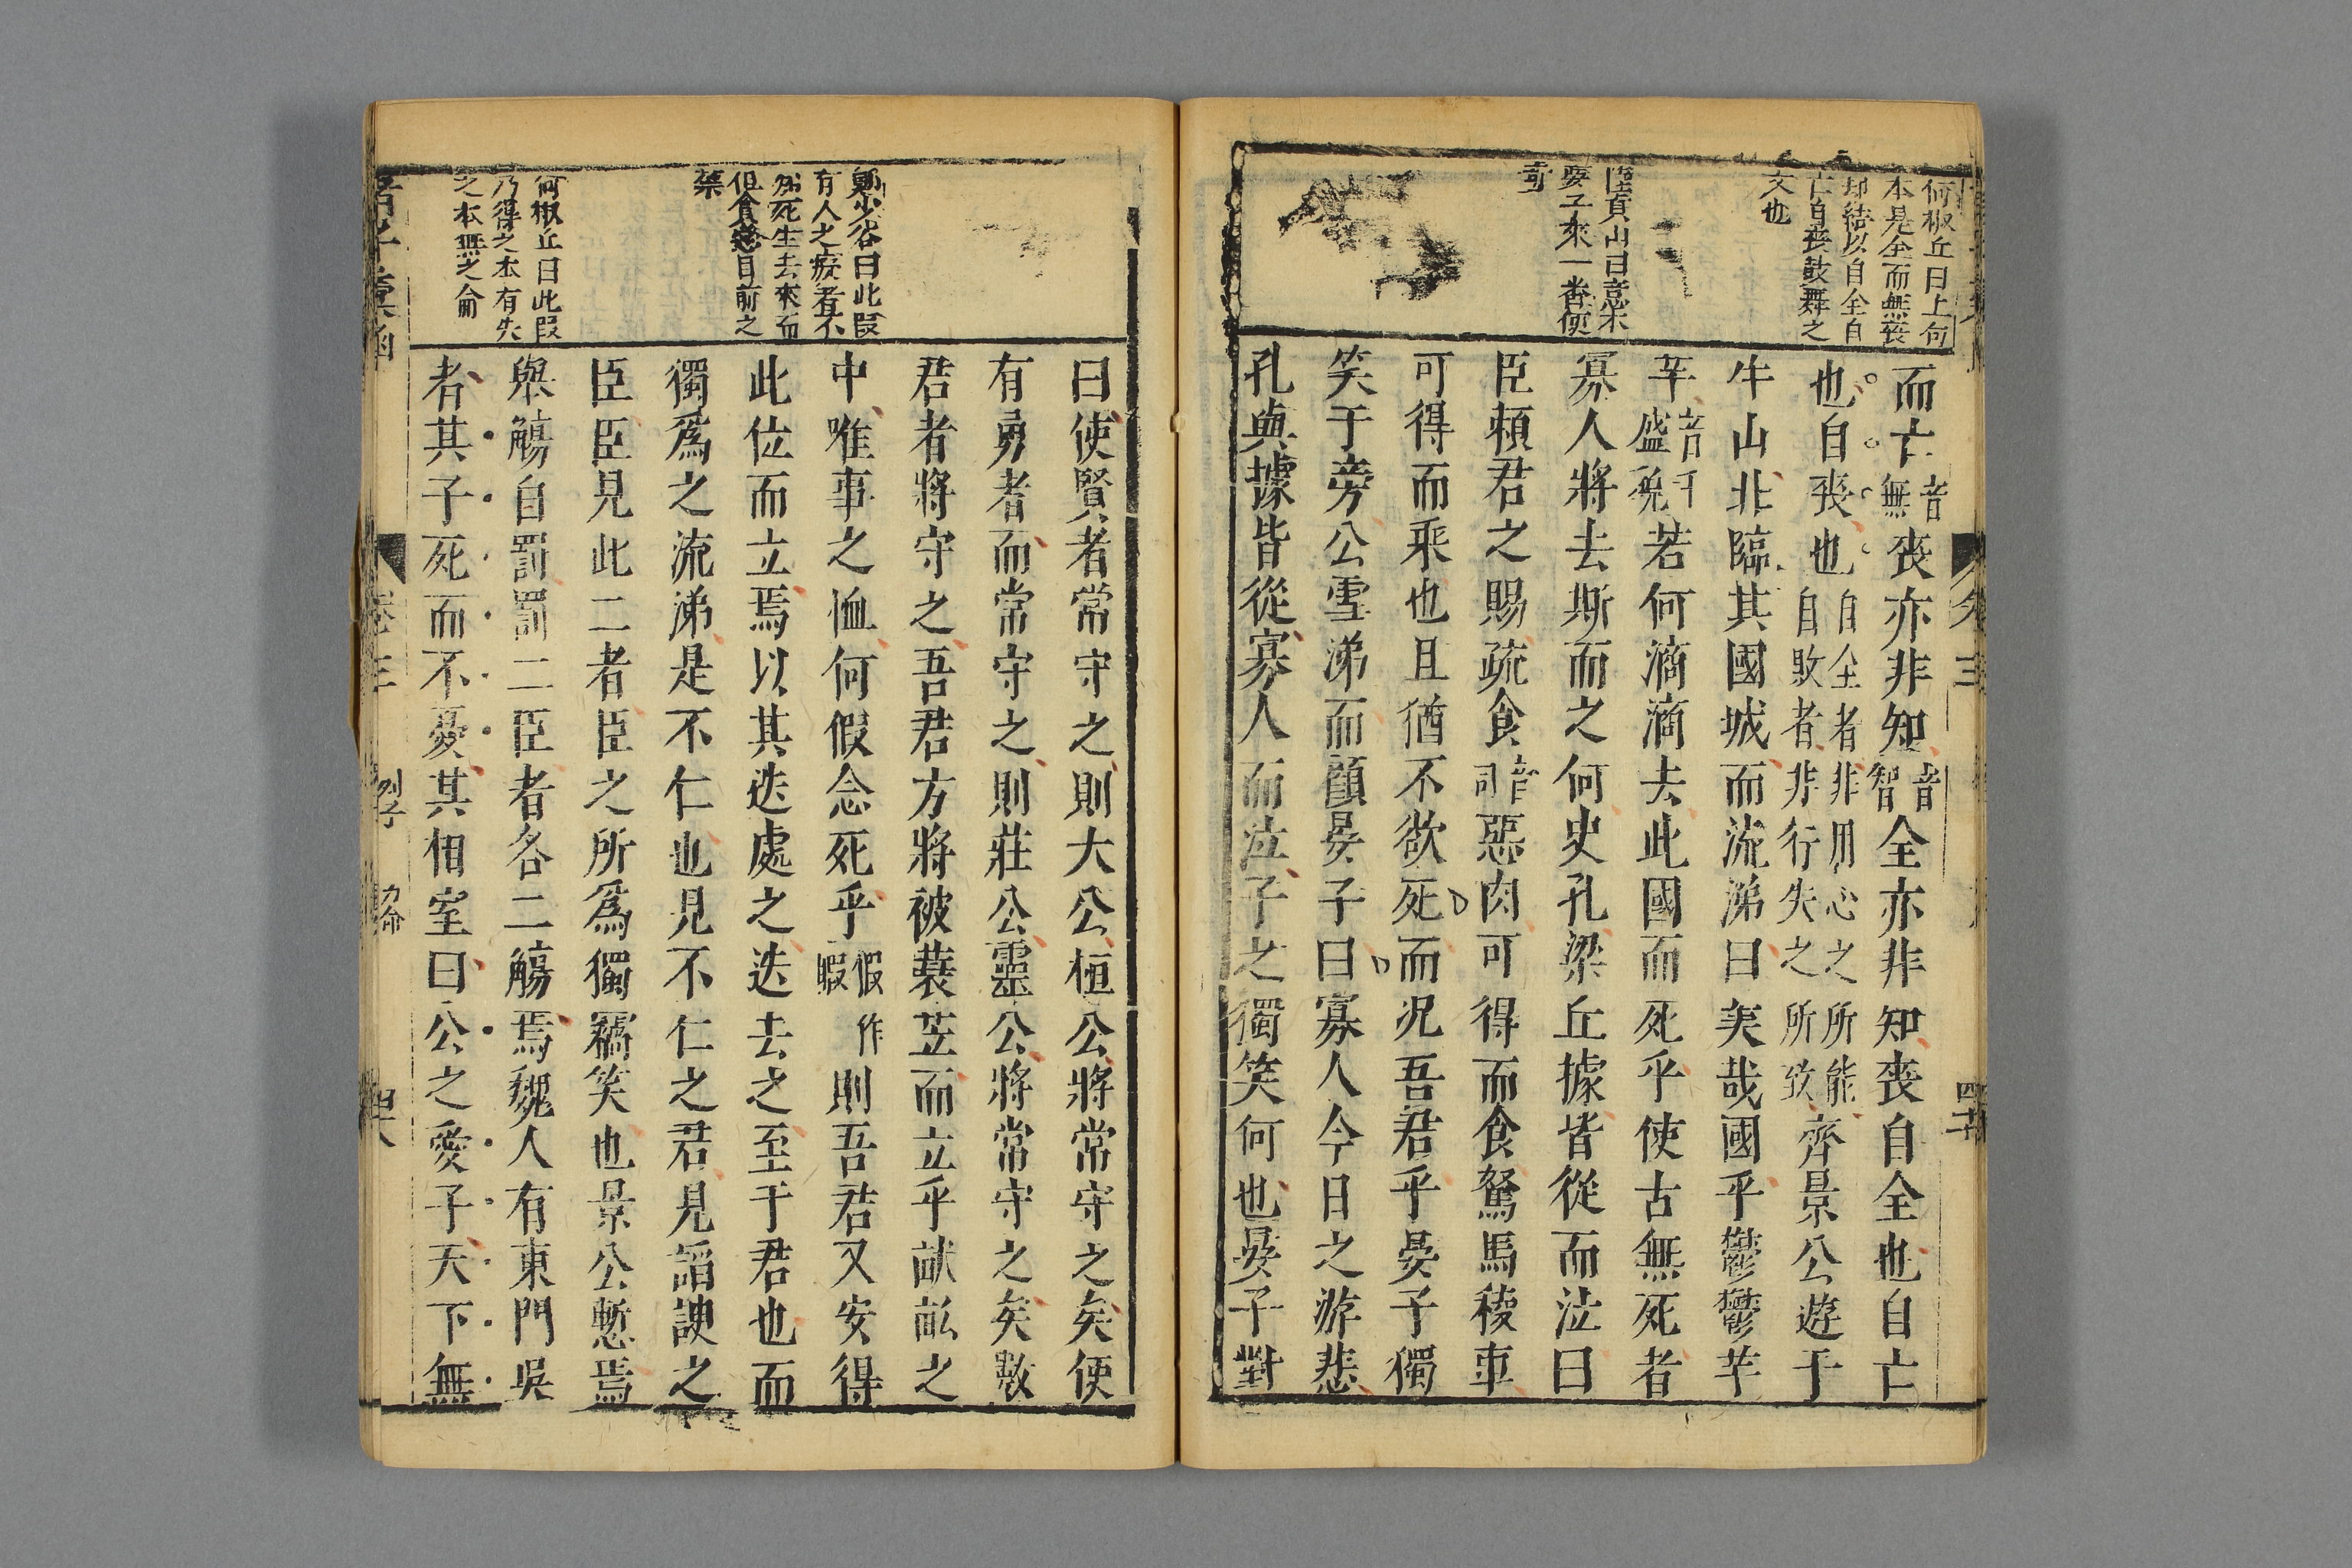 何椒丘曰上句
本是全而無喪
却結以自全自
亡自喪鼓舞之
文也
陸貞山曰意末
要子來一眷便
奇
而亡音無喪亦非知音智全亦非知喪自全也自亡
也自喪也自全者非用心之所能自敗者非行失之所致齊景公遊于
牛山北臨其國城而流涕曰美哉國乎鬱鬱芊
芊音千盛貌若何滴滴去此國而死乎使古無死者
寡人將去斯而之何史孔梁丘據皆從而泣曰
臣賴君之賜疏食音司惡肉可得而食駑馬稜車
可得而乘也且猶不欲死而况吾君乎晏子獨
笑于旁公雪涕而顔晏子曰寡人今日之游悲
孔與據皆從寡人而泣子之獨笑何也晏子對
卷三
四十七
鄭少谷曰此叚
有人之癡者不
知死生去來而
但貪戀目前之
榮
何椒丘曰此叚
乃得之本有失
之本無之俞
曰使賢者常守之則大公桓公將常守之矣使
有勇者而常守之則莊公靈公將常守之矣數
君者將守之吾君方將被蓑笠而立乎畎畝之
中唯事之恤何假念死乎假作暇則吾君又安得
此位而立焉以其迭處之迭去之至于君也而
獨爲之流涕是不仁也見不仁之君見諂諛之
臣臣見此二者臣之所爲獨竊笑也景公慙焉
舉觴自罰罰二臣者各二觴焉魏人有東門吳
者其子死而不憂其相室曰公之愛子天下無
諸子彙函
卷三
列子
力命
四十八